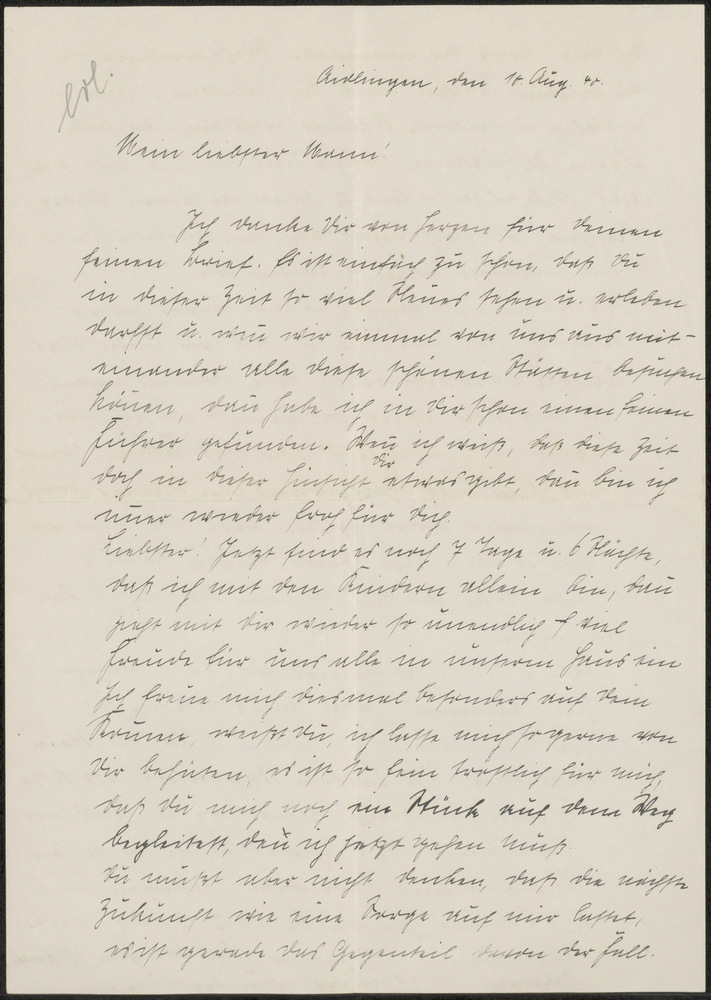 erl.
Aidlingen, den 18. Aug. 40.
Mein liebster Mann!
Ich danke Dir von Herzen für Deinen
feinen Brief. Es ist einfach zu schön, daß Du
in dieser Zeit so viel Neues sehen u. erleben
darfst u. weñ wir einmal von uns aus mit-
einander alle diese schönen Stätten besuchen
köñen, dañ habe ich in Dir schon einen feinen
Führer gefunden. Weñ ich weiß, daß diese Zeit
doch in dieser Hinsicht dir etwas gibt, dañ bin ich
imer wieder froh für Dich.
Liebster! Jetzt sind es noch 7 Tage u. 6 Nächte,
daß ich mit den Kindern allein bin, dañ
zieht mit Dir wieder so unendlich viel
Freude für uns alle in unserm Haus ein
Ich freue mich diesmal besonders auf Dein
Komen, weißt Du, ich lasse mich so gerne von
Dir behüten, es ist so fein tröstlich für mich,
daß Du mich noch ein Stück auf dem Weg
begleitest, den ich jetzt gehen muß.
Du mußt aber nicht denken, daß die nächste
Zukunft wie eine Sorge auf mir lastet,
es ist gerade das Gegenteil davon der Fall.